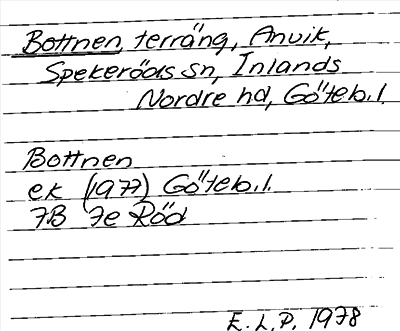 Bottnen, terräng, Anvik,
Spekeröds sn, Inlands
Nordre hd, Göteb.l.
Bottnen
ek (1977) Göteb.l.
7B 7e Röd
E.L.P. 1978